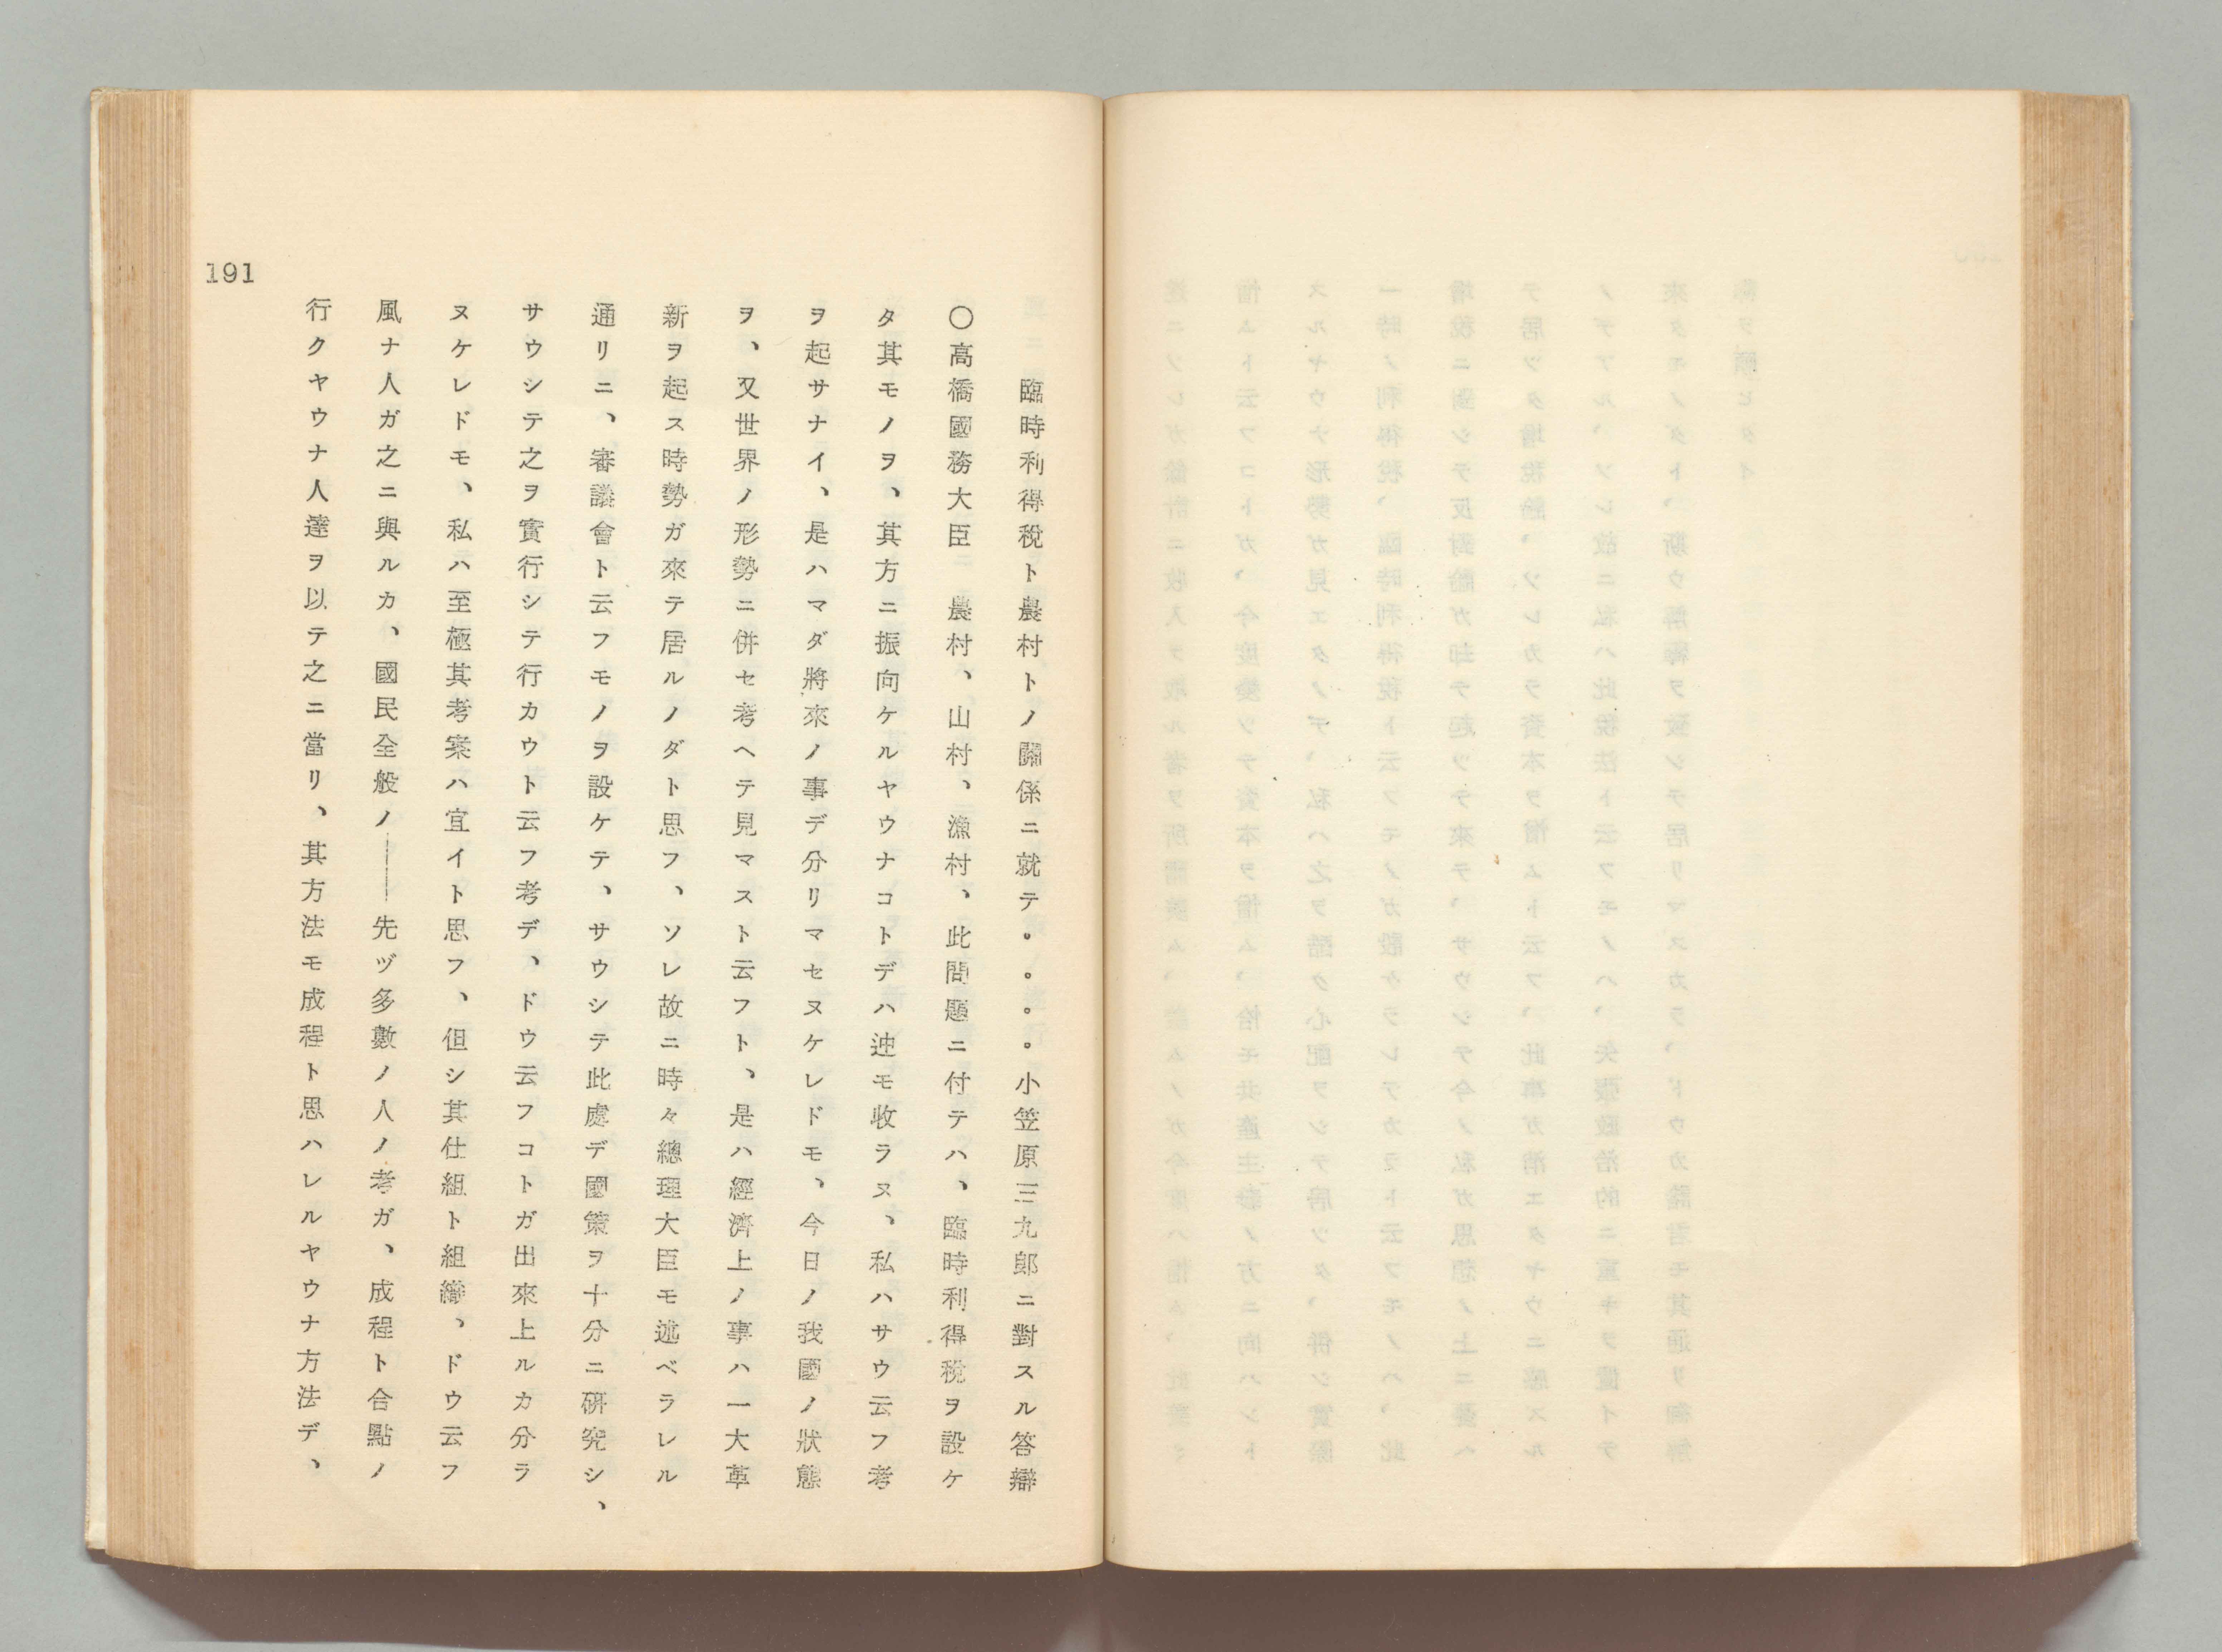 臨時利得稅ト農村トノ關係ニ就テ。。。。小笠原三九郎ニ對スル答辯
〇高橋國務大臣 農村、山村、漁村、此問題ニ付テハ、臨時利得稅ヲ設ケ
タ其モノヲ、其方ニ振向ケルヤウナコトデハ迚モ收ラヌ、私ハサウ云フ考
ヲ起サナイ、是ハマダ將來ノ事デ分リマセヌケレドモ、今日ノ我國ノ狀態
ヲ、又世界ノ形勢ニ併セ考ヘテ見マスト云フト、是ハ經濟上ノ事ハ一大革
新ヲ起ス時勢ガ來テ居ルノダト思フ、ソレ故ニ時々總理大臣モ述ベラレル
通リニ、審議會ト云フモノヲ設ケテ、サウシテ此處デ國策ヲ十分ニ硏究シ、
サウシテ之ヲ實行シテ行カウト云フ考デ、ドウ云フコトガ出來上ルカ分ラ
ヌケレドモ、私ハ至極其考案ハ宜イト思フ、但シ其仕組ト組織、ドウ云フ
風ナ人ガ之ニ與ルカ、國民全般ノ――先ヅ多數ノ人ノ考ガ、成程ト合點ノ
行クヤウナ人達ヲ以テ之ニ當リ、其方法モ成程ト思ハレルヤウナ方法デ、
191